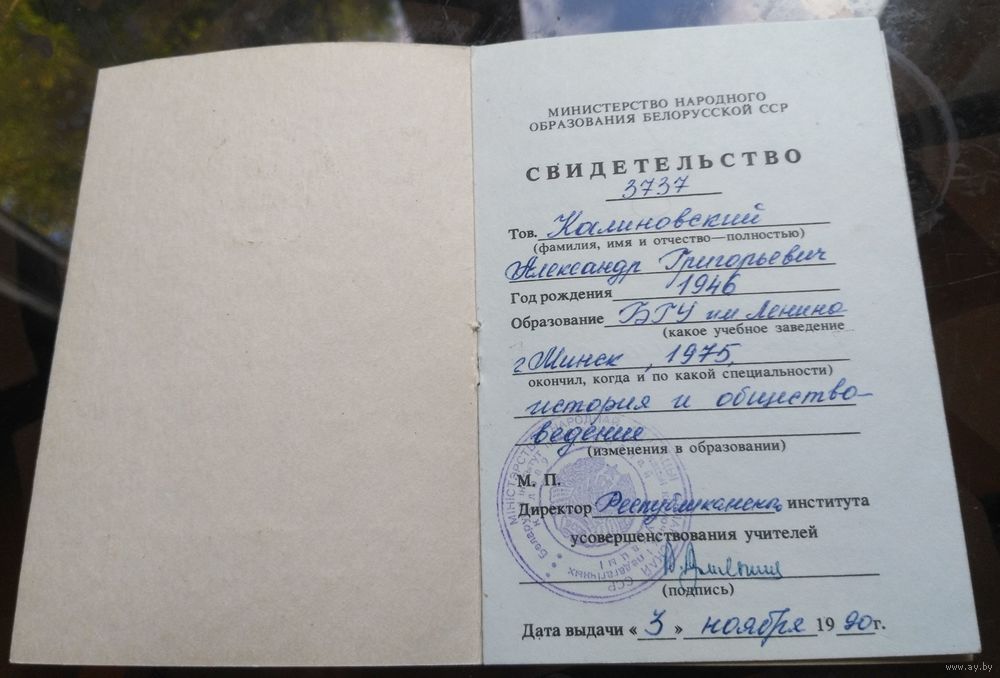 МИНИСТЕРСТВО НАРОДНОГО
ОБРАЗОВАНИЯ БЕЛОРУССКОЙ ССР
СВИДЕТЕЛЬСТВО
3737
Тов. Калиновский
(фамилия, имя и отчество—полностью)
Александр Григорьевич
Год рождения 1946
Образование БГУ им Ленина
(какое учебное заведение
г Минск, 1975
окончил, когда и по какой специальности)
история и общество-
ведение
(изменения в образовании)
М. П.
Директор Республиканско института
усовершенствования учителей
(подпись)
Дата выдачи «3» ноября 1990г.
www.ay.by